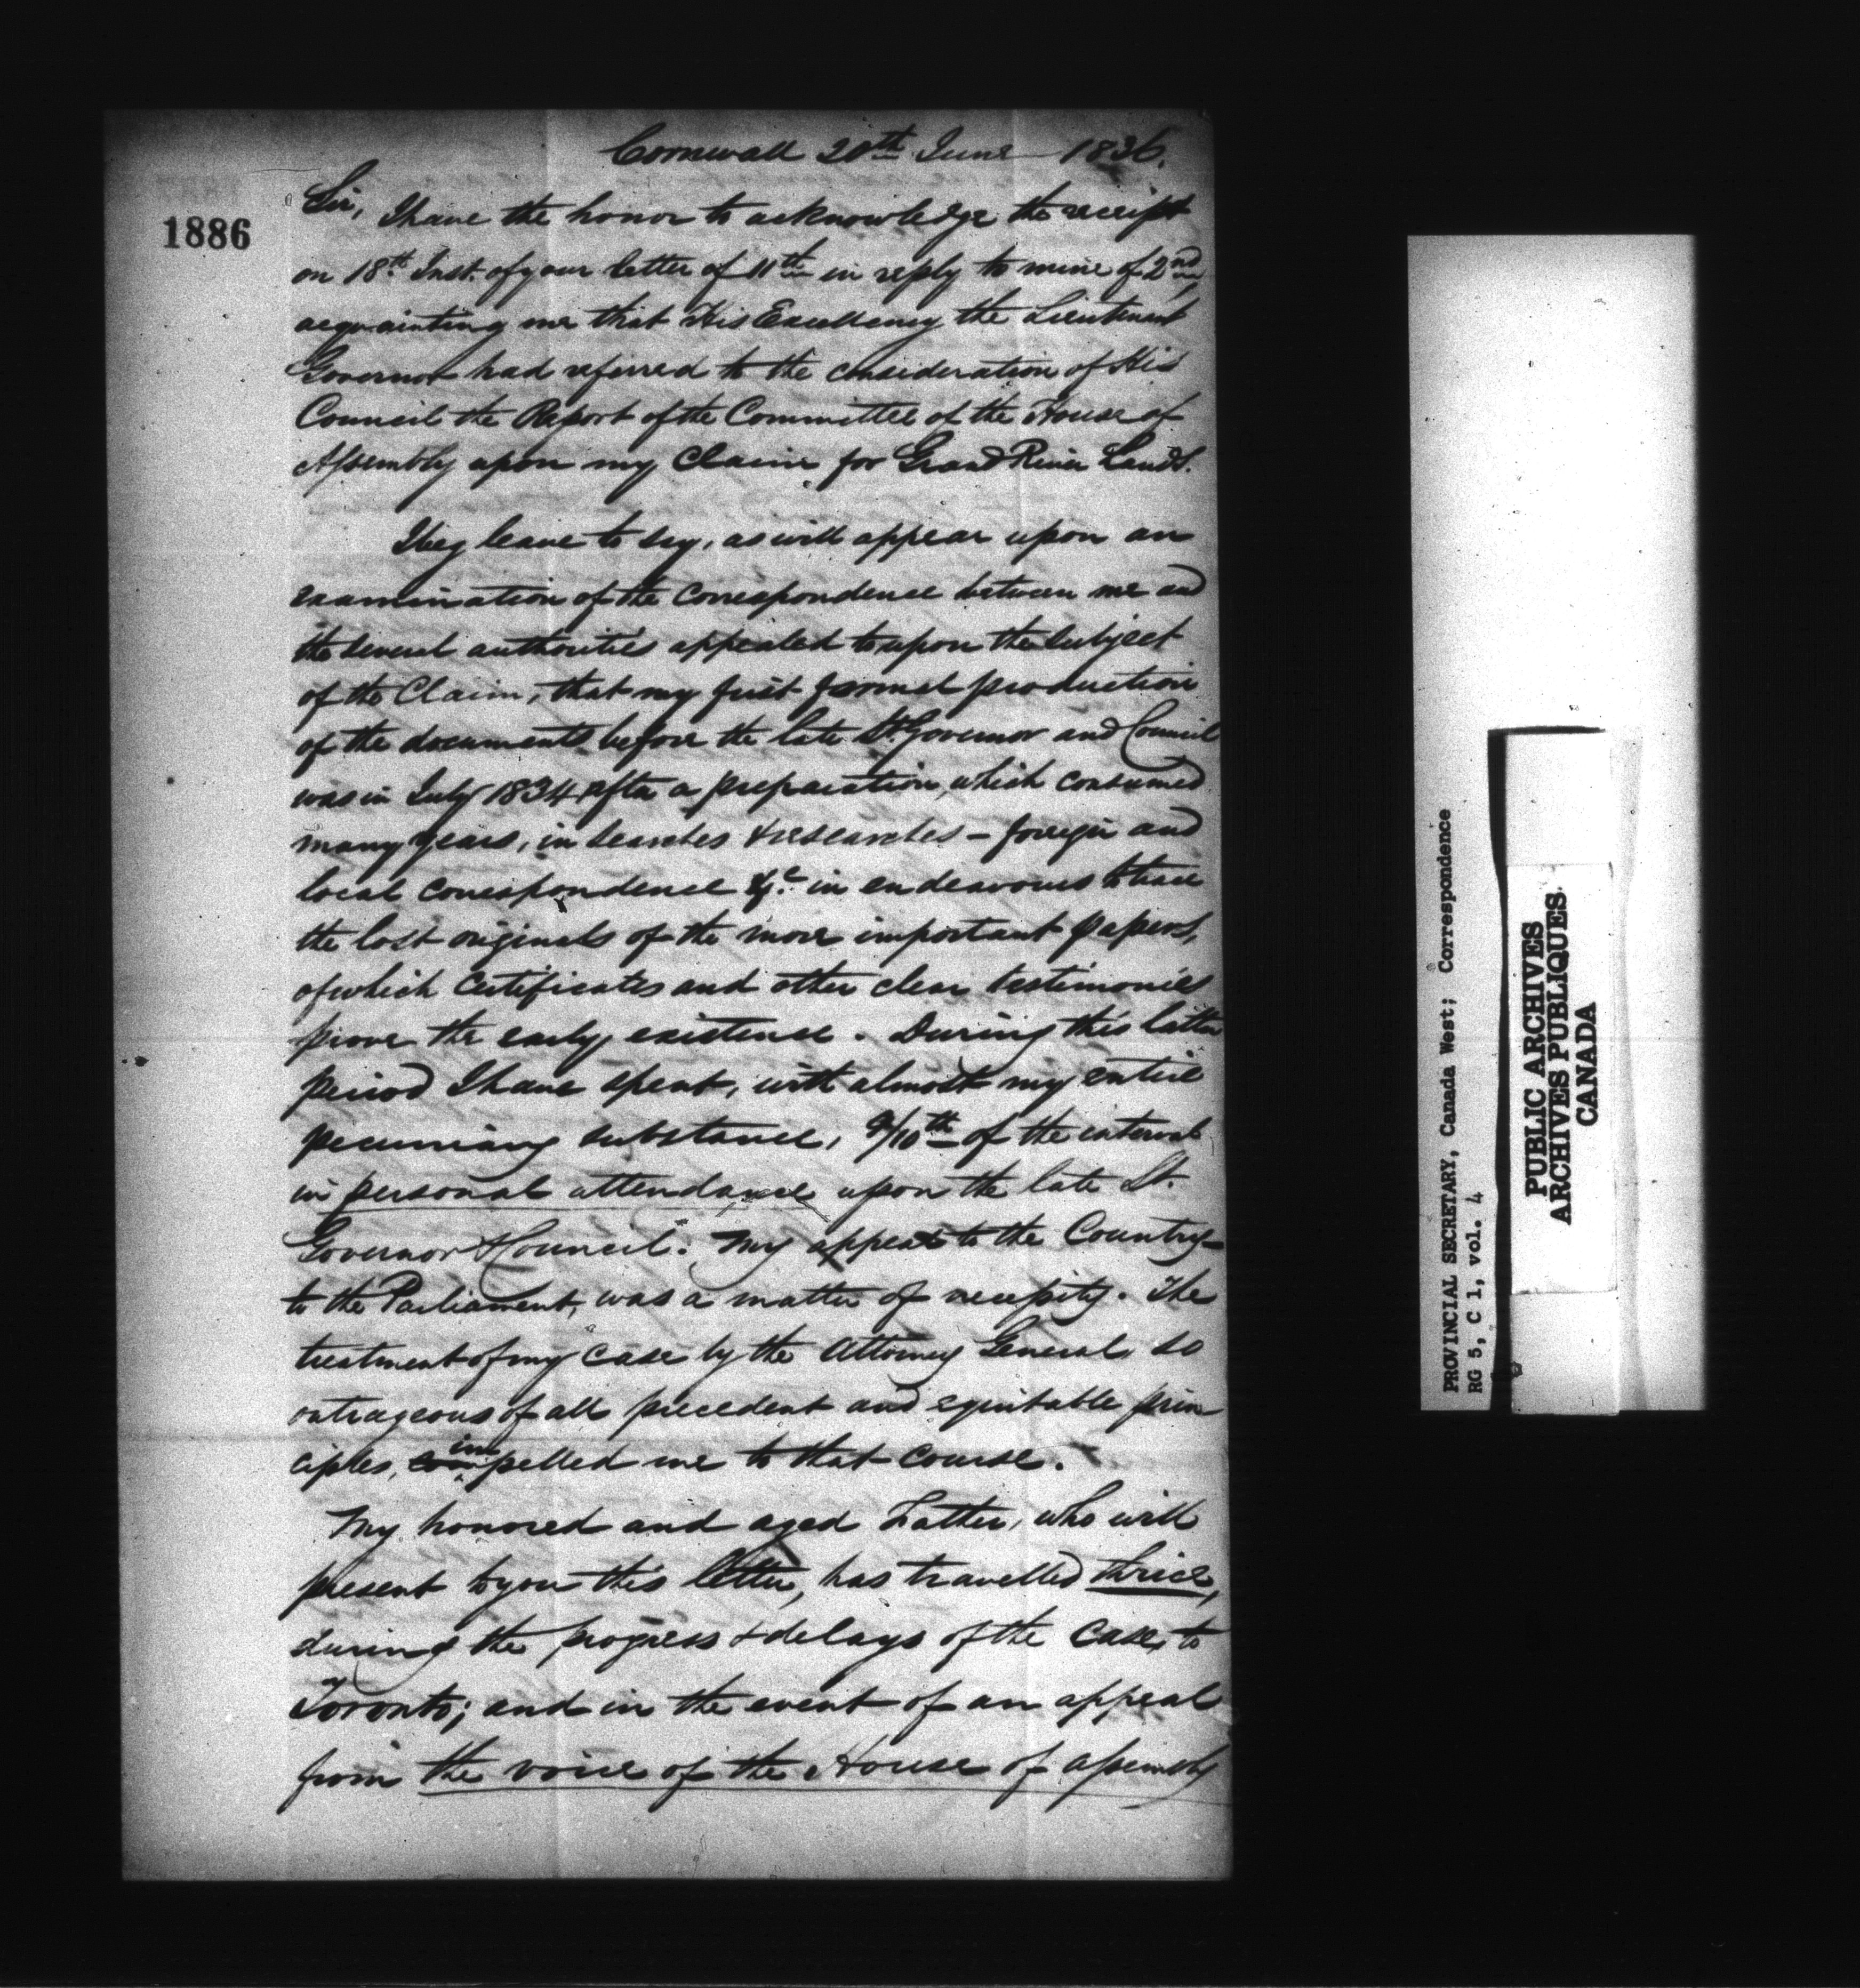 Cornwall 20th June 1836.
1886
Sir, I have the honor to acknowledge the receipt
on 18th Inst. of your letter of 11th in reply to mine of 2nd,
acquainting me that His Excellency the Lieutenant
Governor had referred to the consideration of His
Council the Report of the Committee of the House of
Assembly upon my Claim for Grand River Lands.
I beg leave to say, as will appear upon an
examination of the Correspondence between me and
the several authorities appealed to upon the subject
of the Claim, that my first formal production
of the documents before the late Lt. Governor and Council
was in July 1834 after a preparation, which consumed
many years, in searches & researches - foreign and
local correspondence &c. in endeavours to trace
the lost originals of the more important papers,
of which Certificates and other clear testimonies
prove the early existence. During this latter
period I have spent, with almost my entire
pecuniary substance, 9/10th of the interval
in personal attendance upon the late Lt.
Governor & Council. My appeal to the Country
to the Parliament, was a matter of necessity. The
treatment of my case by the Attorney General, so
outrageous of all precedent and equitable prin
ciples, impelled me to that course.
My honored and aged Father, who will
present to you this letter, has travelled thrice,
during the progress & delays of the case, to
Toronto; and in the event of an appeal
from the voice of the House of Assembly
PROVINCIAL SECRETARY, Canada West; Correspondence
RG 5, C 1, vol. 4
PUBLIC ARCHIVES
ARCHIVES PUBLIQUES
CANADA